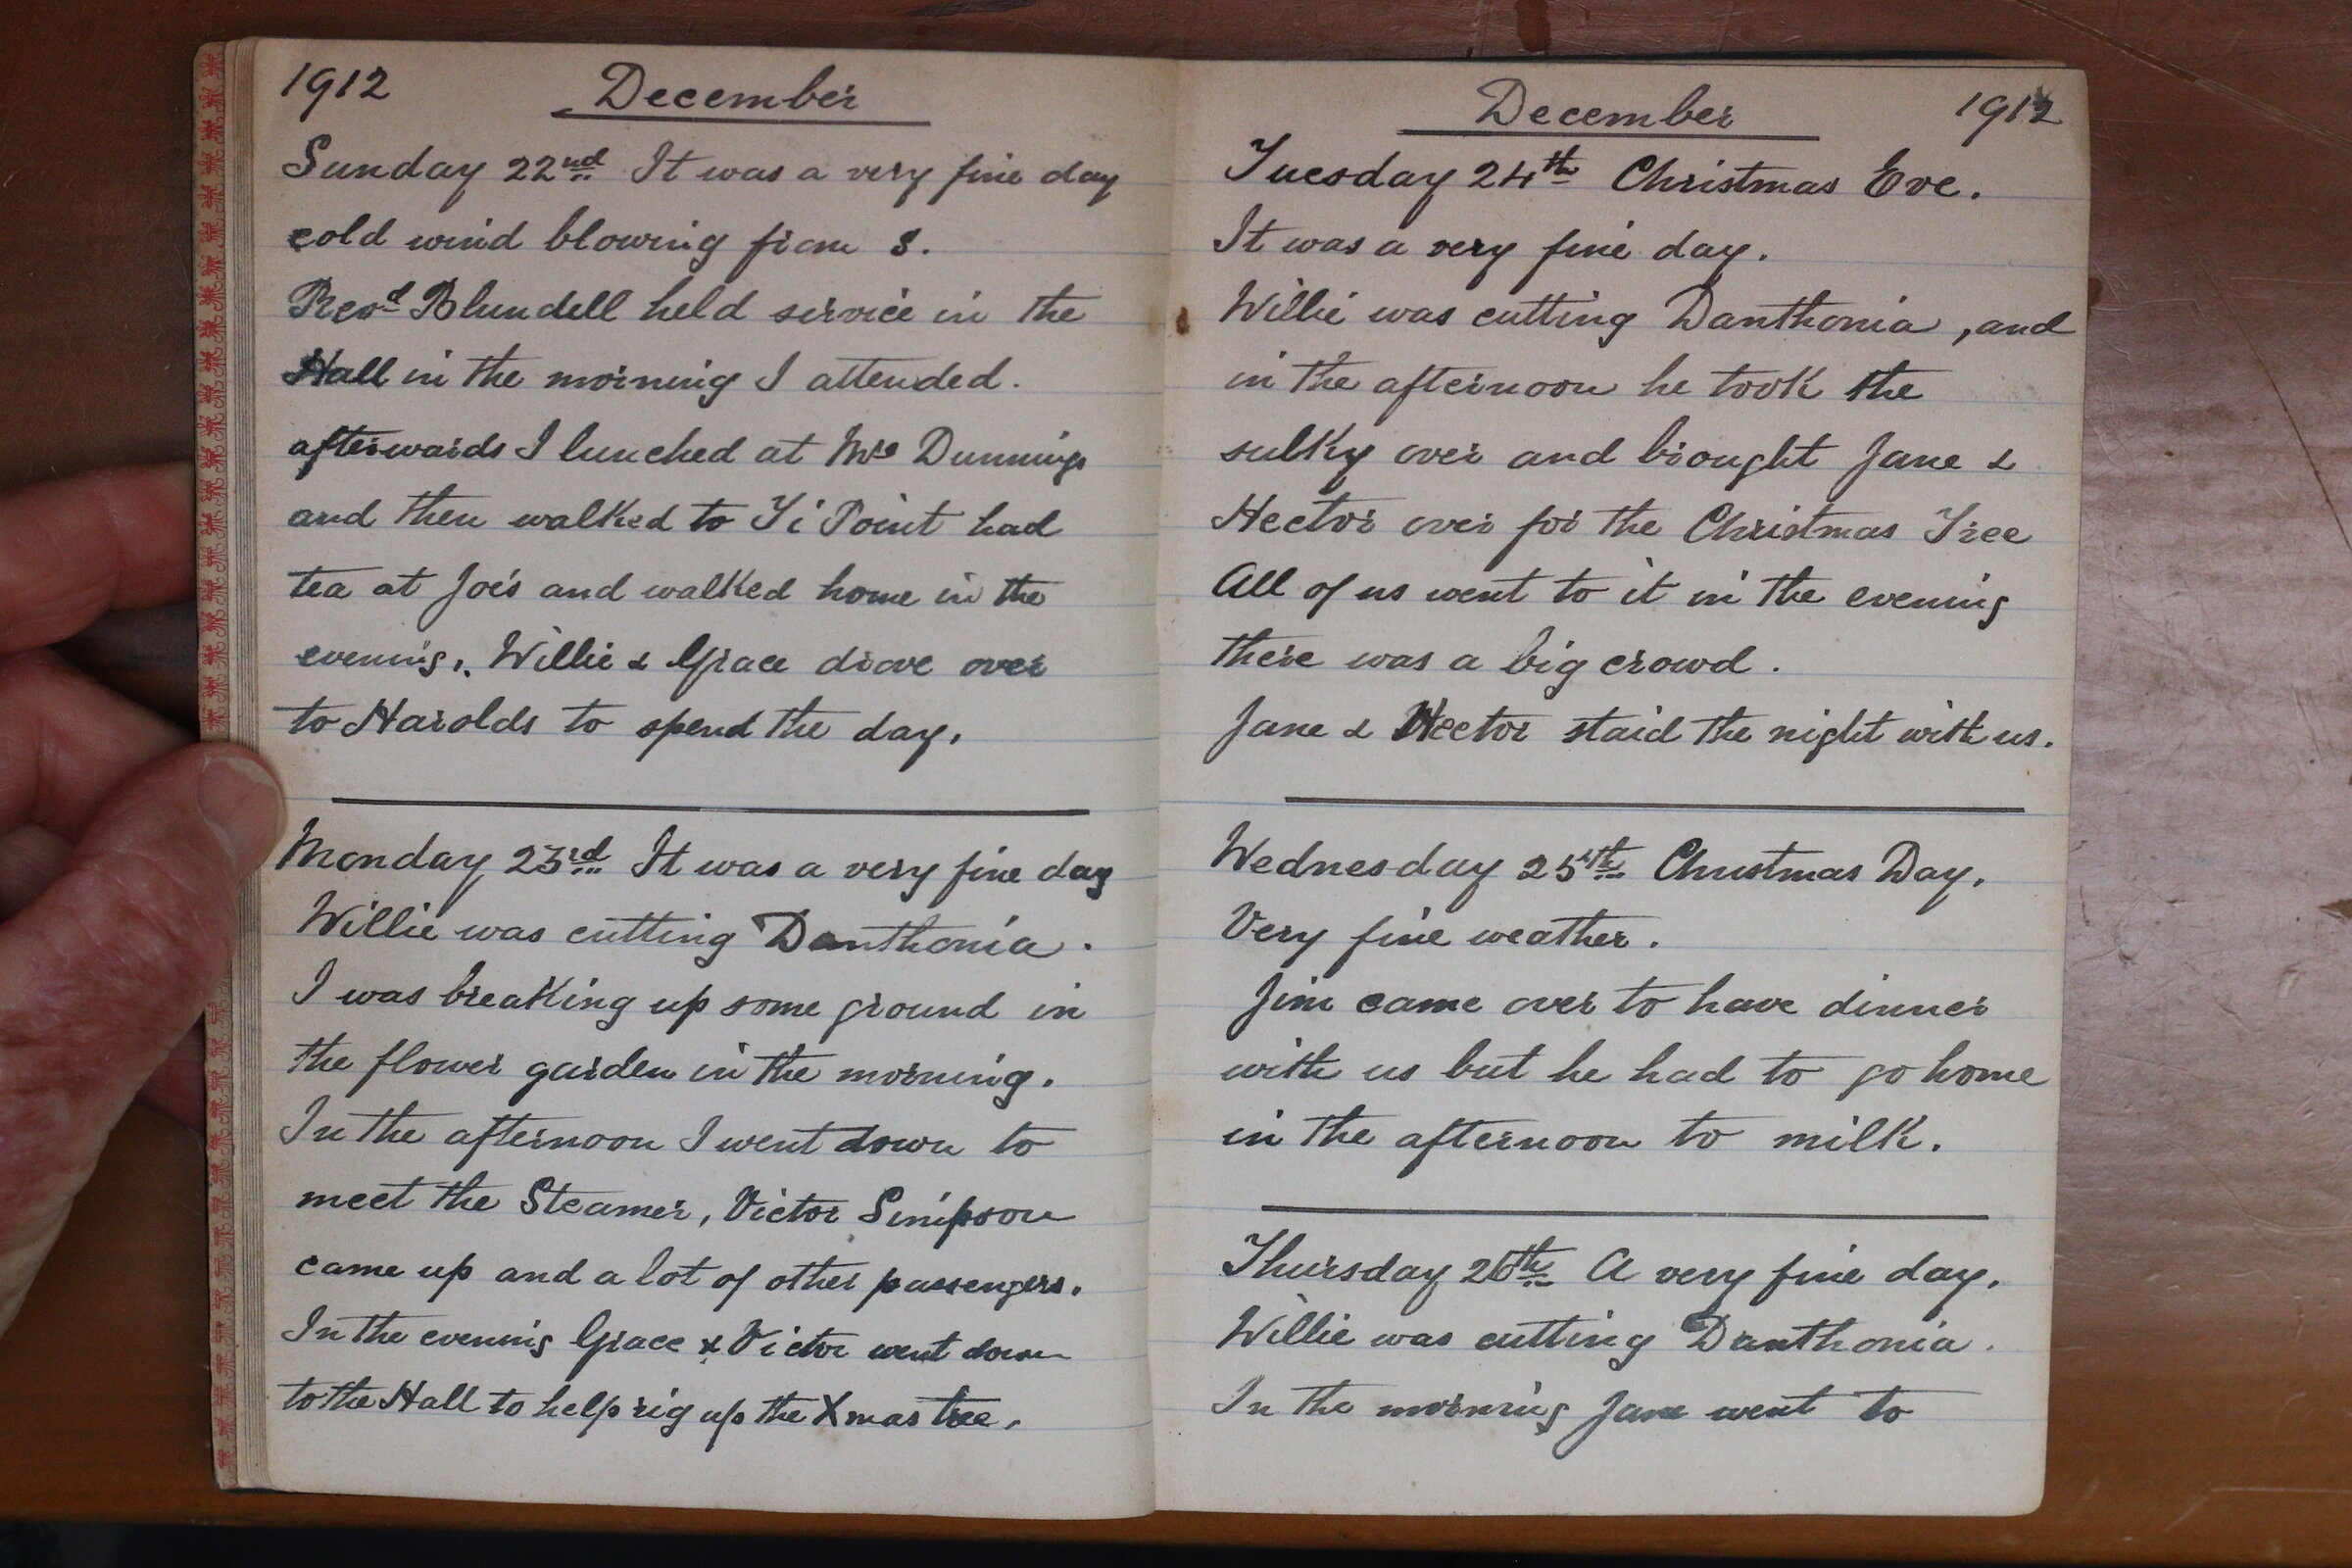 1912 December
Sunday 22nd It was a very fine day
cold wind blowing from S.
Revd Blundell held service in the
Hall in the morning I attended.
afterwards I lunched at Mrs Dunnings
and then walked to Ti Point had
tea at Joes and walked home in the
evening. Willie & Grace drove over
to Harolds to spend the day.
Monday 23rd It was a very fine day
Willie was cutting Danthonia.
I was breaking up some ground in
the flower garden in the morning.
In the afternoon I went down to
meet the Steamer, Victor Simpson
came up and a lot of other passengers.
In the evening Grace & Victor went down
to the Hall to help rig up the Xmas tree.
December 1912
Tuesday 24th Christmas Eve.
It was a very fine day.
Willie was cutting Danthonia, and
in the afternoon he took the
sulky over and brought Jane &
Hector over for the Christmas Tree
All of us went to it in the evening
there was a big crowd.
Jane & Hector staid the night with us.
Wednesday 25th Christmas Day.
Very fine weather.
Jim came over to have dinner
with us but he had to go home
in the afternoon to milk.
Thursday 26th A very fine day.
Willie was cutting Danthonia.
In the morning Jane went to